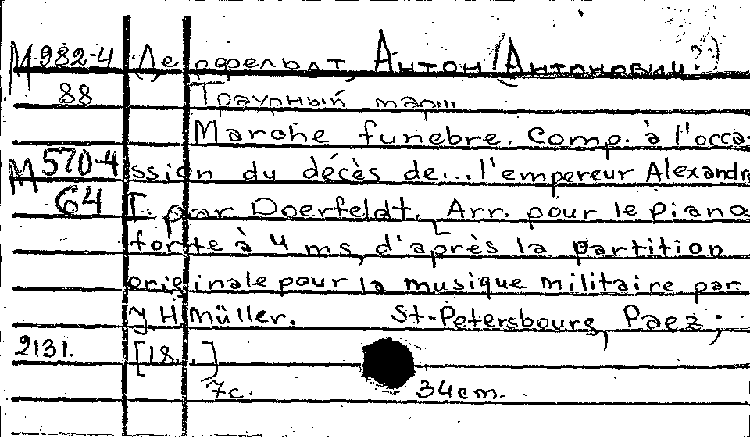 М 982-4 Дерфельдт, Антон (Антонович?)
88 Траурный марш
Marche funebre. Comp. à l'occa-
М 570-4 ssion du décès de... l'empereur Alexandre
64 I. par Doerfeldt. Arr. pour le piano
forte à 4 ms, d'après la partition
originale pour la musique militaire par
J H Müller. St-Petersbourg, Paez;
2131. [18..]
7c. 34cm.